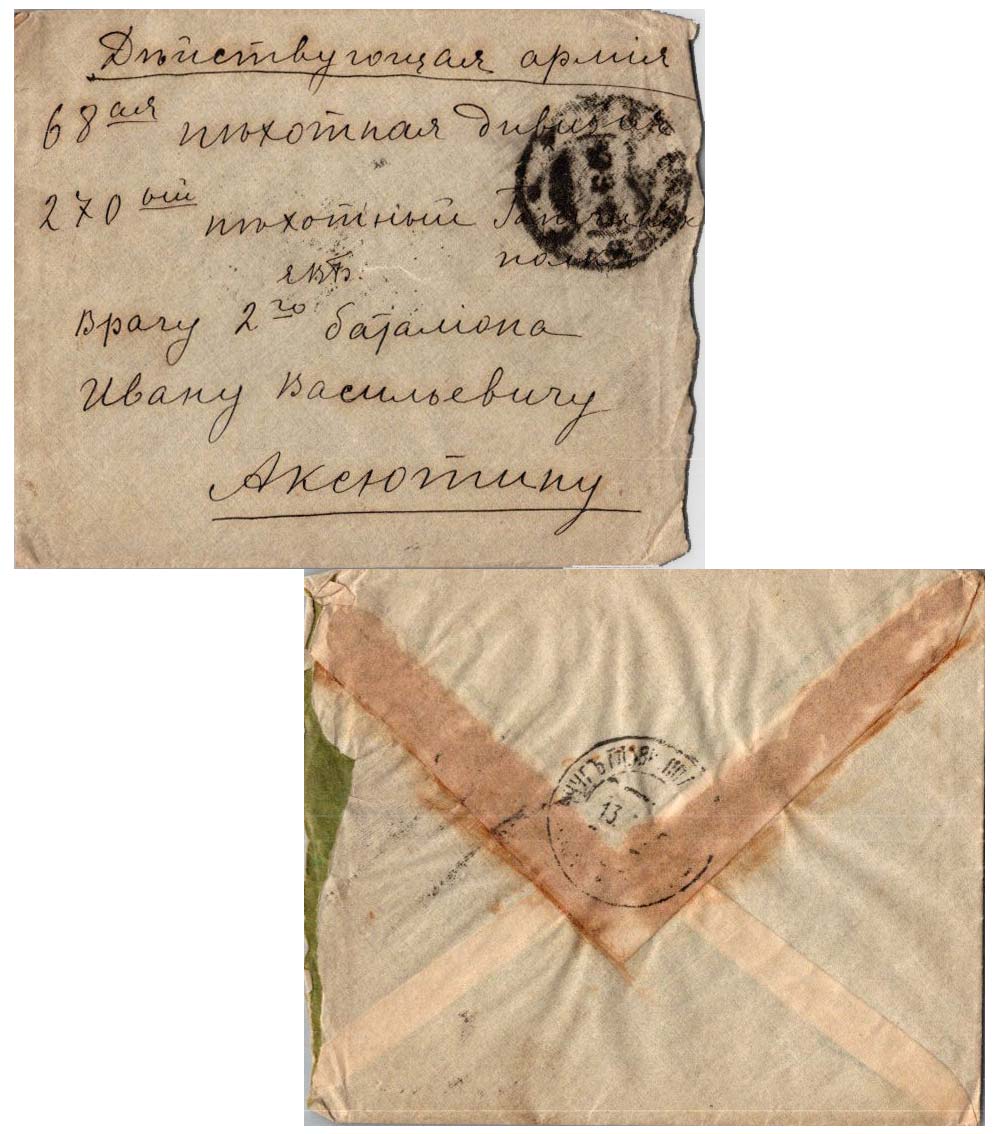 Дѣйствующая армія
68ая пѣхотная дивизія
270ый пѣхотный
полкъ
Врачу 2го баталіона
Ивану Васильевичу
Аксютину
ГЛАВН.
13.